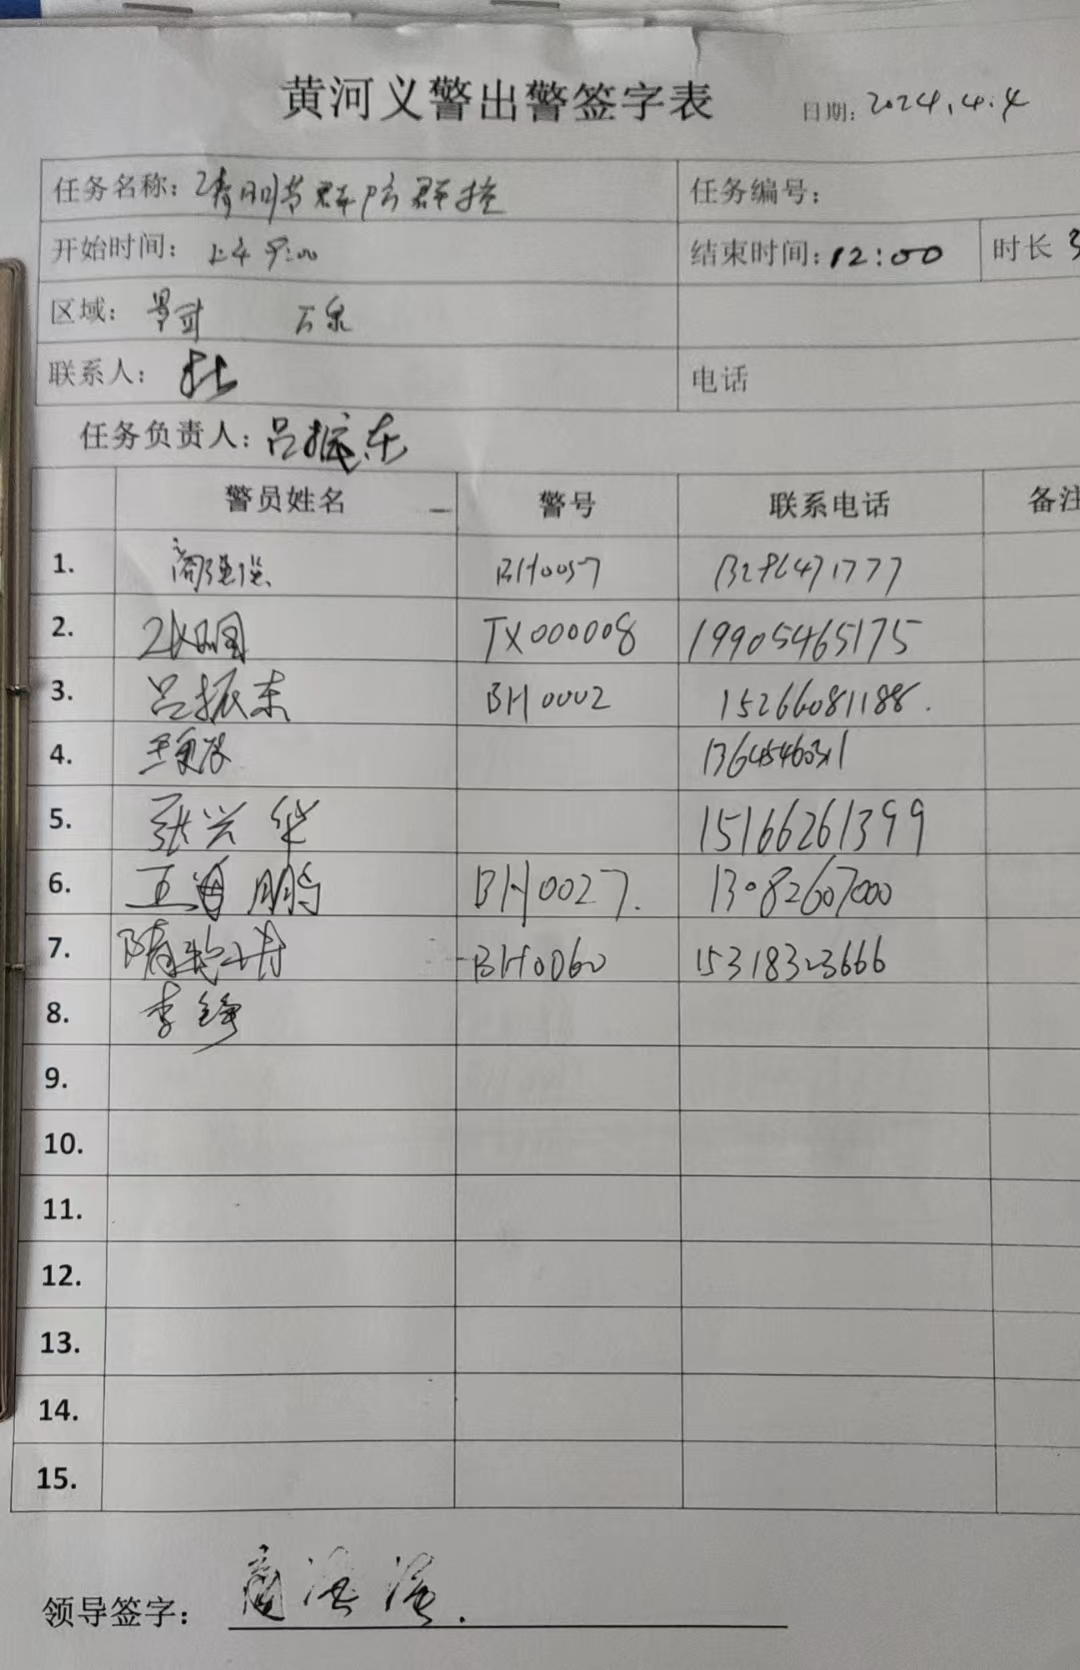 黄河义警出警签字表 日期: 2024.4.4
任务名称: 清明节群防群控 任务编号:
开始时间: 上午9:00 结束时间: 12:00 时长 3
区域: 万泉
联系人: 杜 电话
任务负责人: 吕振东
警员姓名 警号 联系电话 备注
1. BH0057
2. TX000008 19905465175
3. 吕振东 BH0002 15266081188.
4.
5. 张兴华 15166261399
6. 王海鹏 BH0027. 13082607000
7. BH0060 15318323666
8. 李铮
9.
10.
11.
12.
13.
14.
15.
领导签字: